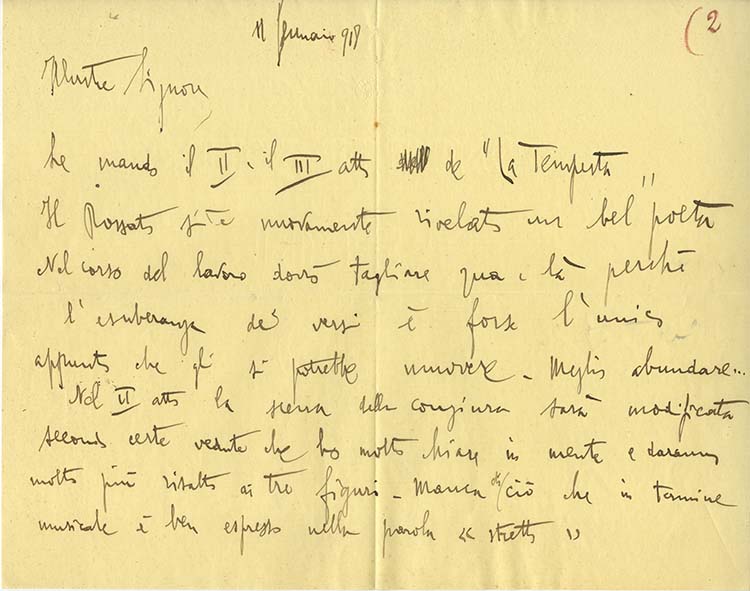 (2
11 Gennaio 918
Illustre Signore,
Le mando il II e il III atto de "La Tempesta"
Il Rossato s'è nuovamente rivelato un bel poeta
Nel corso del lavoro dovrò tagliare qua e là perchè
l'esuberanza de' versi è forse l'unico
appunto che gli si potrebbe muovere. Meglio abundare...
Nel II atto la scena della congiura sarà modificata
secondo certe vedute che ho molto chiare in mente e daranno
molto più risalto ai tre figuri. Manca di ciò che in termine
musicale è ben espresso nella parola « stretto »